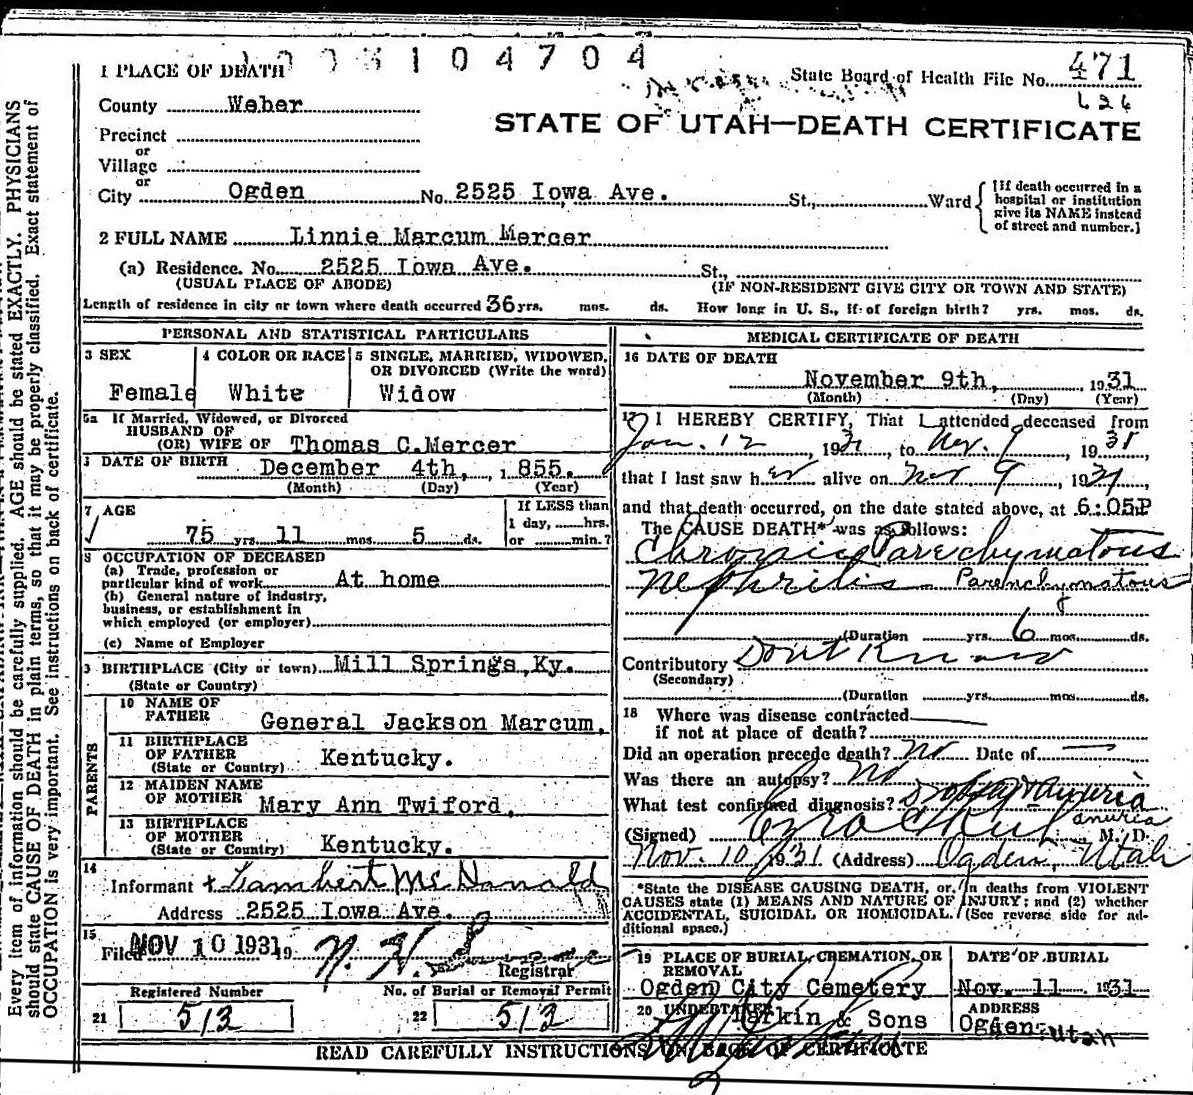 1003104704
1 PLACE OF DEATH
State Board of Health File No. 471
County Weber
STATE OF UTAH—DEATH CERTIFICATE
Precinct
or
Village
or
City Ogden No. 2525 Iowa Ave. St., Ward
[If death occurred in a hospital or institution give its NAME instead of street and number.]
2 FULL NAME Linnie Marcum Mercer
(a) Residence. No. 2525 Iowa Ave. St.,
(USUAL PLACE OF ABODE) (IF NON-RESIDENT GIVE CITY OR TOWN AND STATE)
Length of residence in city or town where death occurred 36 yrs. mos. ds. How long in U. S., if of foreign birth? yrs. mos. ds.
PERSONAL AND STATISTICAL PARTICULARS
3 SEX
Female
4 COLOR OR RACE
White
5 SINGLE, MARRIED, WIDOWED,
OR DIVORCED (Write the word)
Widow
5a If Married, Widowed, or Divorced
HUSBAND OF
(OR) WIFE OF Thomas C. Mercer
DATE OF BIRTH December 4th, 1855.
(Month) (Day) (Year)
7 AGE
75 yrs. 11 mos. 5 ds.
If LESS than
1 day, hrs.
or min.?
8 OCCUPATION OF DECEASED
(a) Trade, profession or
particular kind of work At home
(b) General nature of industry,
business, or establishment in
which employed (or employer)
(c) Name of Employer
9 BIRTHPLACE (City or town) Mill Springs, Ky.
(State or Country)
PARENTS
10 NAME OF
FATHER General Jackson Marcum,
11 BIRTHPLACE
OF FATHER
(State or Country) Kentucky.
12 MAIDEN NAME
OF MOTHER Mary Ann Twiford,
13 BIRTHPLACE
OF MOTHER
(State or Country) Kentucky.
14
Informant + Lambert McDonald
Address 2525 Iowa Ave.
15
Filed NOV 10 1931 19
Registrar
Registered Number
21 513
No. of Burial or Removal Permit
22 513
MEDICAL CERTIFICATE OF DEATH
16 DATE OF DEATH
November 9th, 1931
(Month) (Day) (Year)
17 I HEREBY CERTIFY, That I attended deceased from
Jan. 12, 1931, to Nov. 9 1931
that I last saw her alive on Nov 9, 1931,
and that death occurred, on the date stated above, at 6:05P
The CAUSE DEATH* was as follows:
Chronic Parechymatous
Nephritis Parenchymatous
(Duration yrs. 6 mos. ds.
Contributory Don't Know
(Secondary)
(Duration yrs. mos. ds.
18 Where was disease contracted
if not at place of death?
Did an operation precede death? No Date of
Was there an autopsy? No
What test confirmed diagnosis?
anuria
(Signed) M. D.
Nov. 10, 1931 (Address) Ogden, Utah
*State the DISEASE CAUSING DEATH, or, in deaths from VIOLENT
CAUSES state (1) MEANS AND NATURE OF INJURY; and (2) whether
ACCIDENTAL, SUICIDAL OR HOMICIDAL. (See reverse side for ad-
ditional space.)
19 PLACE OF BURIAL, CREMATION, OR
REMOVAL
Ogden City Cemetery
DATE OF BURIAL
Nov. 11 1931
20 UNDERTAKER
Larkin & Sons
ADDRESS
Ogden, Utah
READ CAREFULLY INSTRUCTIONS ON BACK OF CERTIFICATE
Every item of information should be carefully supplied. AGE should be stated EXACTLY. PHYSICIANS
should state CAUSE OF DEATH in plain terms, so that it may be properly classified. Exact statement of
OCCUPATION is very important. See instructions on back of certificate.